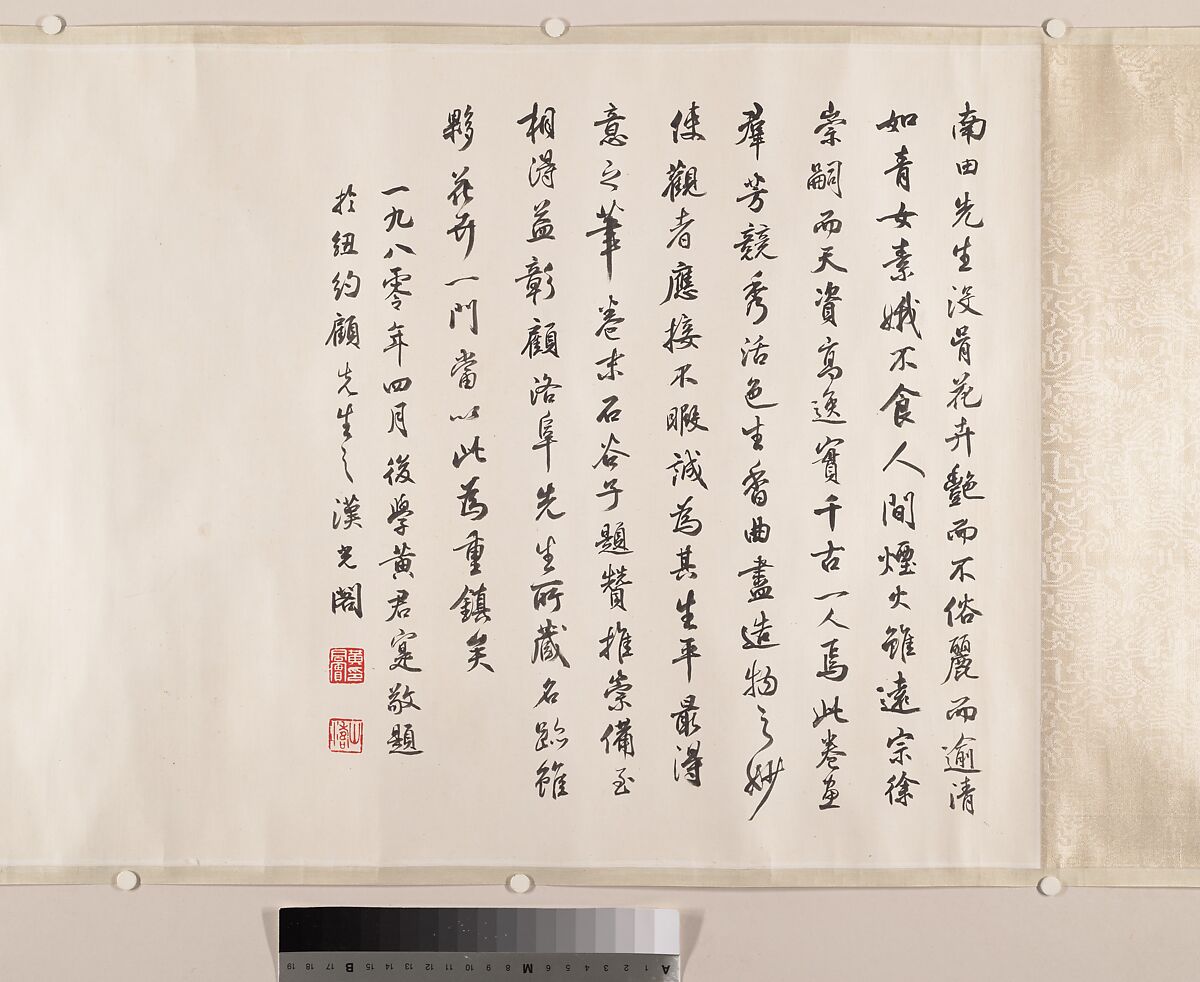 南田先生没骨花卉艷而不俗麗而逾清
如青女素娥不食人間煙火雖遠宗徐
崇嗣而天資高逸實千古一人焉此卷畫
羣芳競秀活色生香曲盡造物之妙
使觀者應接不暇誠為其生平最得
意之筆卷末石谷子題贊推崇備至
相得益彰顧洛阜先生所藏名跡雖
夥花卉一門當以此為重鎮矣
一九八零年四月後學黄君寔敬題
於紐約顧先生之漢光閣
A 1 2 3 4 5 6 M 8 9 10 11 12 13 14 15 B 17 18 19